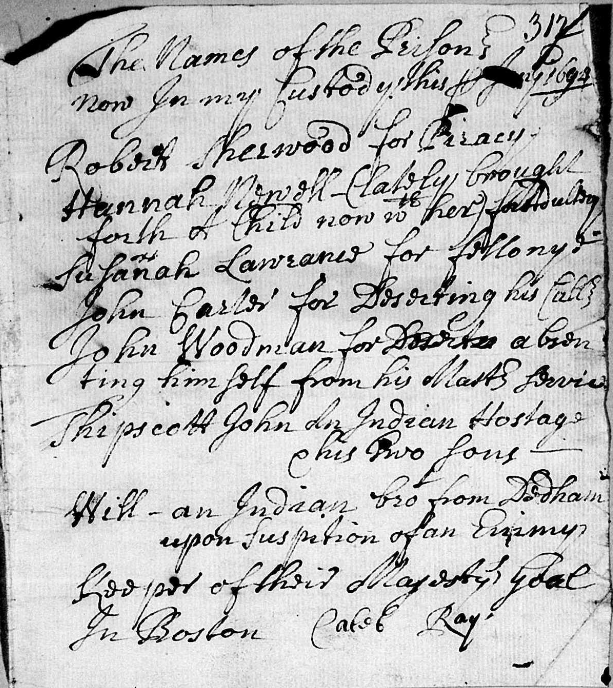 317
The Names of the Prison:rs
now In my Custody this 1694
Robert Sherwood for Piracy
Hannah Newell (lately brought
forth A Child now wth her) for Adultery
Susanah Lawrance for fellony
John Carter for Deserting his
John Woodman for absen
ting himself from his Mastrs Service
Shipscott John An Indian Hostage
& his two Sons —
Will - an Indian bro: from Dedham
upon Suspition of an Enimy
Keeper of their Majestys Goal
In Boston Caleb Ray